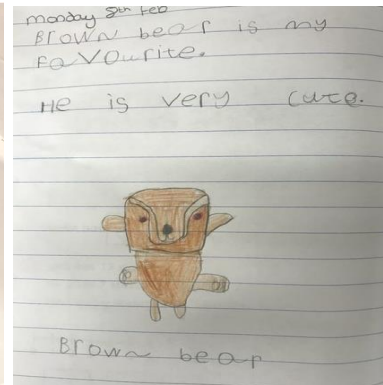 monday 8th Feb
Brown bear is my
FavOurite.
He is very cute.
Brown bear